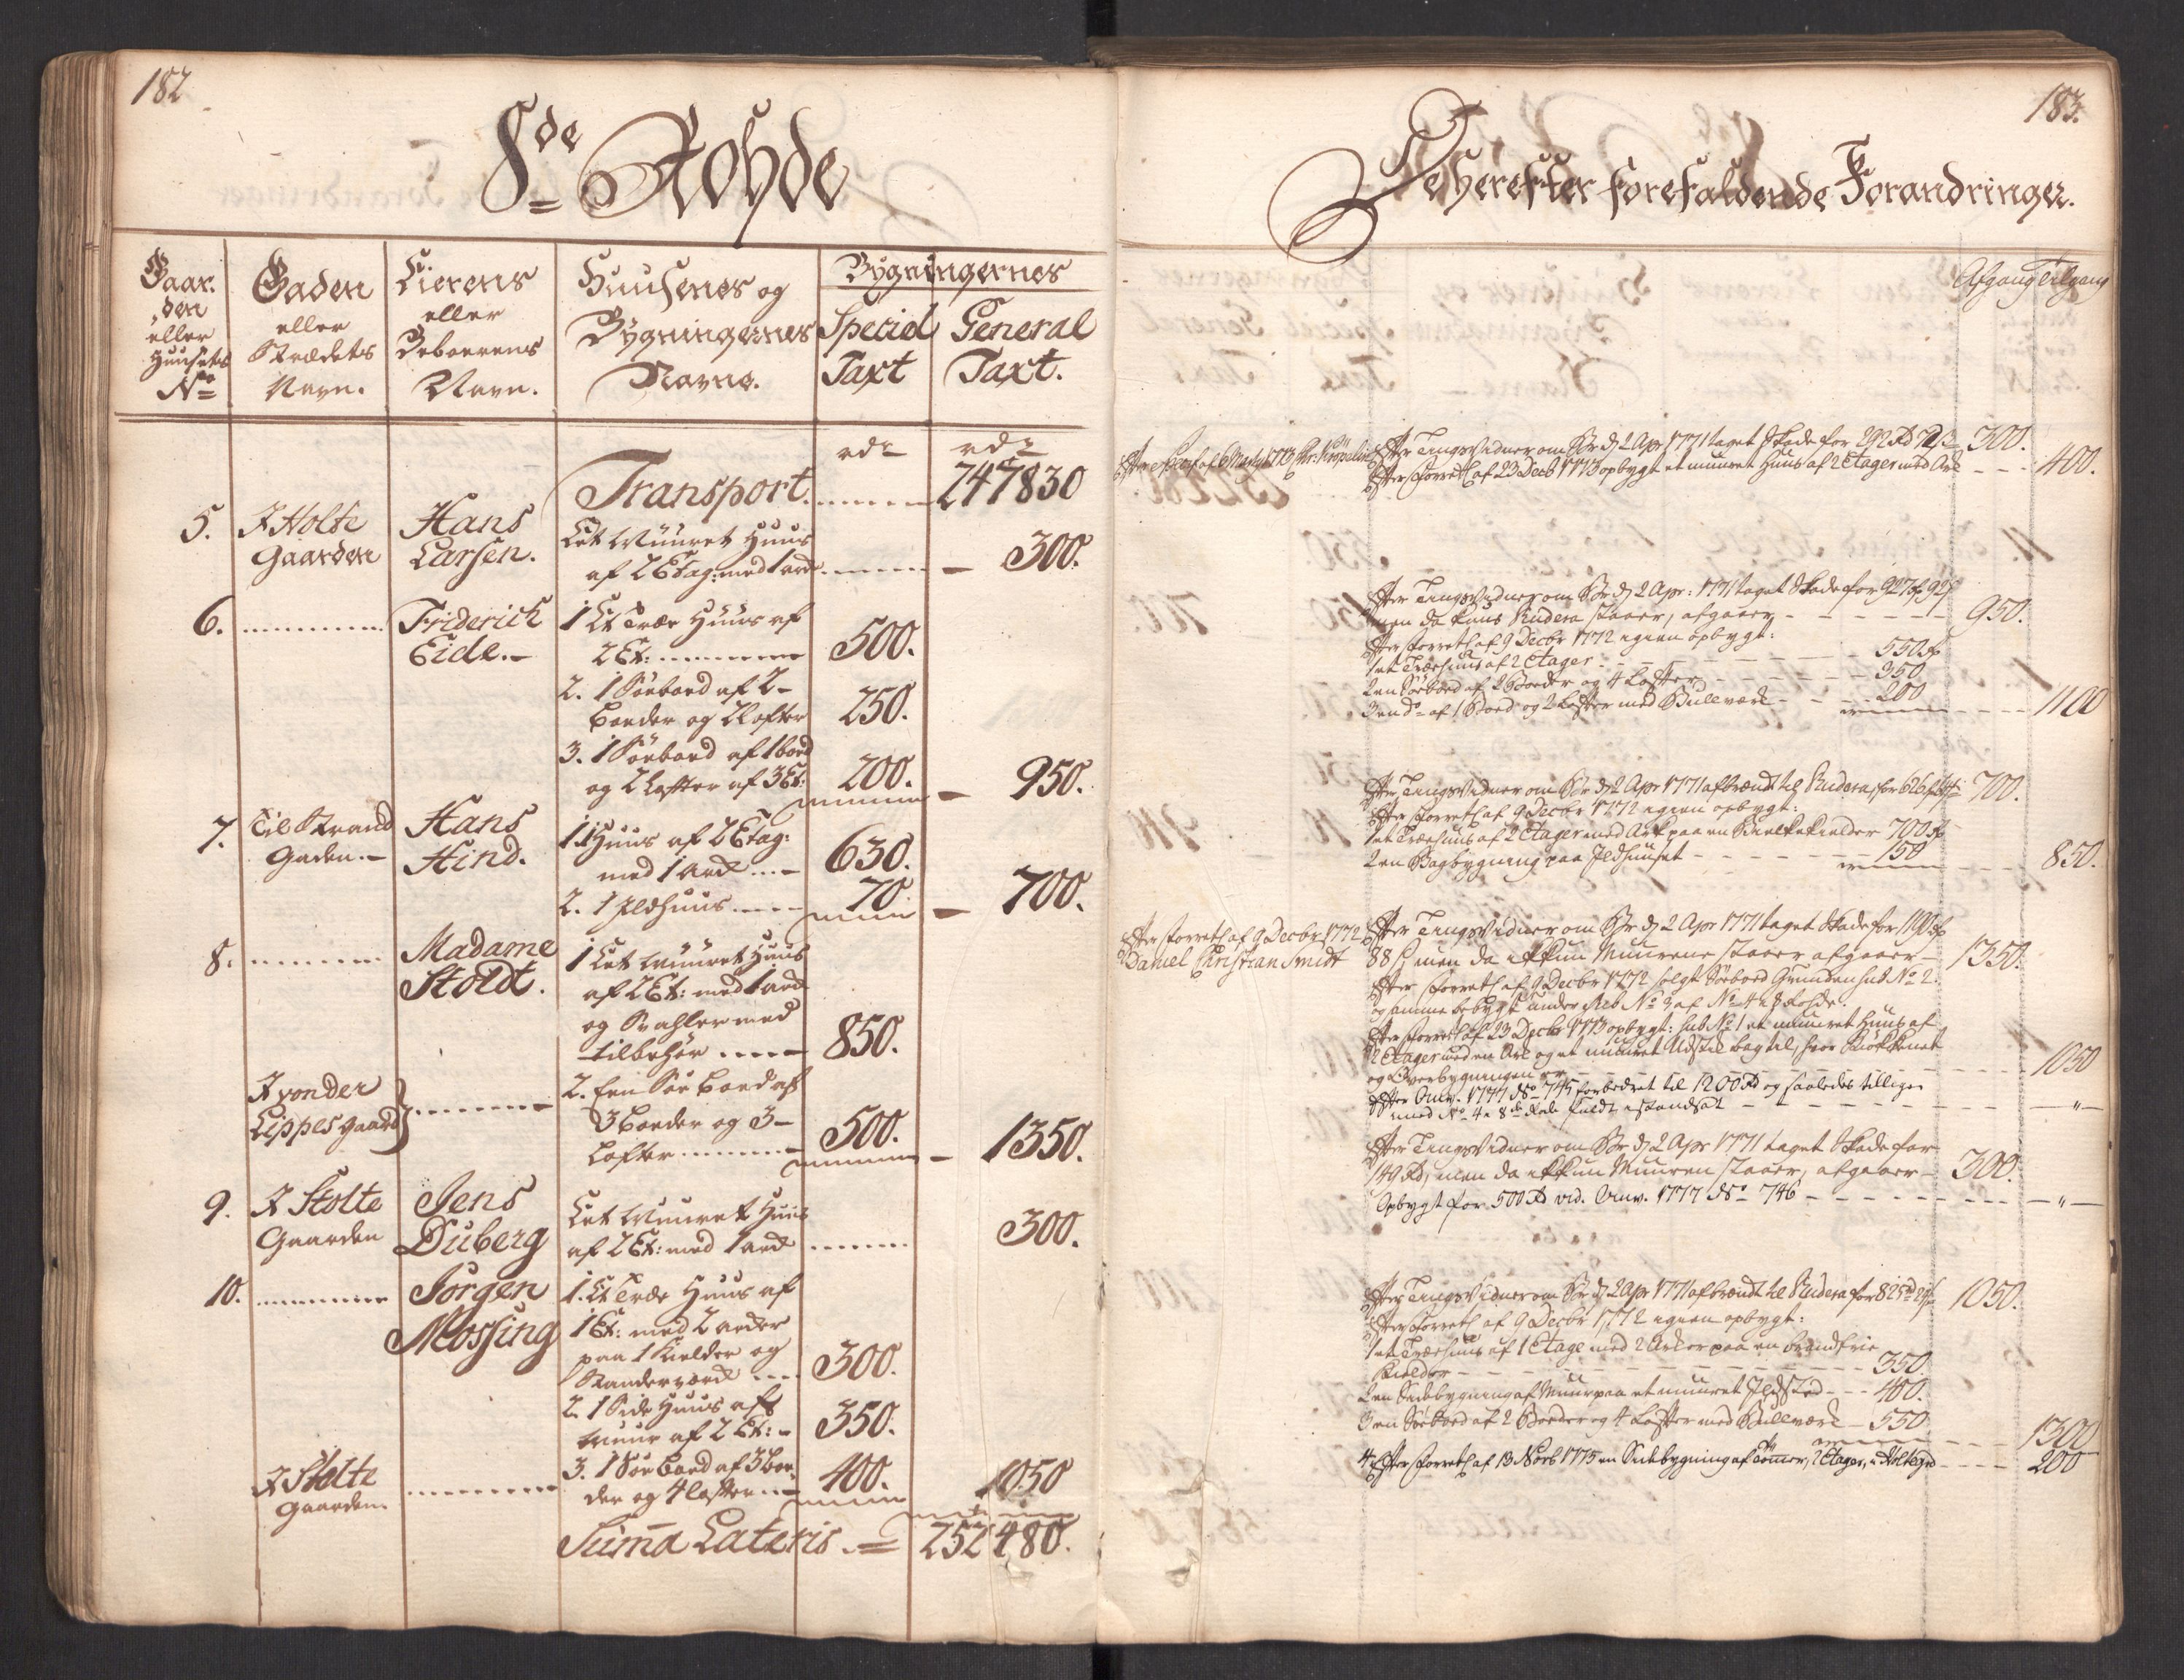 182
8de Rohde
Gaar-
den
eller
Huusets
No
Gaden
eller
Strædets
Navn.
Eierens
eller
Beboerens
Navn.
Huusenes og
Bygningernes
Navne.
Bygningernes
Speciel
Taxt
General
Taxt.
rdr
rdr
Transport. 247830
5. I Holte
Gaarden
Hans
Larsen.
Eet Muuret Huus
af 2 Etag: med 1 ark 300.
6. Friderich
Eide.
1 Et Træe Huus af
2 Et: 500.
2. 1 Søeboed af 2
boeder og 2 lofter 250.
3. 1 Søeboed af 1 boed
og 2 lofter af 3 Et: 200. 950.
7. Til Strand
Gaden.
Hans
Hind.
1. 1 Huus af 2 Etag:
med 1 ark 630.
2. 1 Ildhuus 70. 700.
8. Madame
Stoldt.
1 Eet Muuret Huus
af 2 Et: med 1 ark
og Svahler med
tilbehør 850.
I von der
Lippes gaard
2. Een Søe boed af
3 boeder og 3
lofter 500. 1350.
9. I Stolte
Gaarden
Jens
Duberg
Eet Muuret Huus
af 2 Et: med 1 ark 300.
10. Jørgen
Mossing
1. Et Træe Huus af
1 Et: med 2 arker
paa 1 Kielder og
300.
2. 1 Side Huus af
Muur af 2 Et: 350.
I Stolte
Gaarden.
3. 1 Søe boed af 3 boe-
der og 4 lofter 400. 1050
Suma Lateris 252480.
183.
De herefter forefaldende Forandringer.
Afgang Tilgang
Efter Tingsvidner om Br d 2 Apr 1771 taget Skade for 292 Rd 300.
Efter Forretn af 23 Decb 1773 opbygt et muuret Huus af 2 Etager med Ark 400.
Efter Tingsvidner om Br d 2 Apr: 1771 taget Skade for 927
men da kuns Rudera staaer, afgaaer 950.
Efter Forretn af 9 Decbr 1772 igien opbygt:
1 et Træehuus af 2 Etager 550
2 en Søeboed af 2 Boeder og 4 Lofter 350
3 en do af 1 Boed og 2 Lofter med Bullværk 200 1100
Efter Tingsvidner om Br d 2 Apr 1771 afbrændt til Rudera, for 626 700.
Efter Forretn af 9 Decbr 1772 igien opbygt:
1 et Træehuus af 2 Etager med Ark paa en Kielder 700
2 en Bagbygning paa Ildhuuset 150 850.
Efter Forretn af 9 Decbr 1772
Daniel Christian Smidt
Efter Tingsvidner om Br d 2 Apr 1771 taget Skade for
88 s men da ikkun Muurene staaer afgaaer 1350.
Efter Forretn af 9 Decbr 1772 solgt Søeboed Grunden sub No 2.
og samme bebygt under No 3 af No 4 i 8 Rohde.
Efter Forretn af 23 Decbr 1773 opbygt: sub No 1 et muuret Huus af
2 Etager med en Ark og et muuret Udskud bag til, hvor Kiøkkenet
og Overbygningen er 1050
Efter Omv. 1777 No 745 forbedret til 1200 Rd og saaledes tillige
med No 4 i 8de Rode fuldt istandsat
Efter Tingsvidner om Br d 2 Apr 1771 taget Skade for
149 Rd, men da ikkun Muuren staaer, afgaaer 300.
Opbygt for 500 Rd vid. Omv. 1777 No 746
Efter Tingsvidner om Br d 2 Apr 1771 afbrændt til Rudera for 825 1050.
Efter Forretn af 9 Decbr 1772 igien opbygt:
1 et Træehuus af 1 Etage med 2 Arker paa en brandfrie
Kielder 350
2 en Sidebygning af Muur paa et muuret Ildsted 400.
3 en Søeboed af 2 Boeder og 4 Lofter med Bullværk 550 1300
4 Efter Forretn af 13 Novb 1775 en Sidebygning af Tømmer, 2 Etager, 200